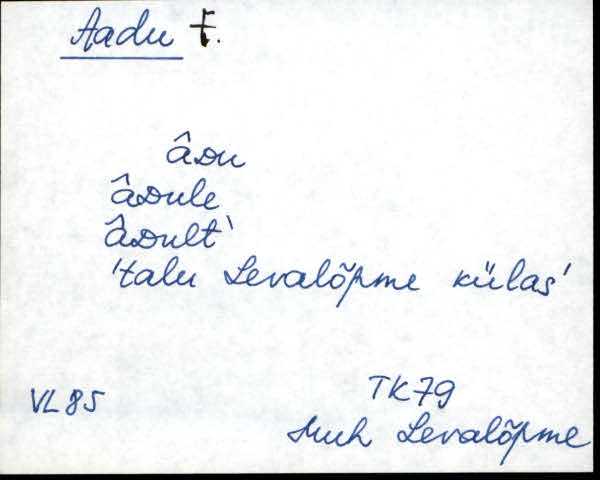 Aadu t.
âDu
âDule
âDult`
'talu Levalõpme külas'
VL85
TK79
Muh Levalõpme